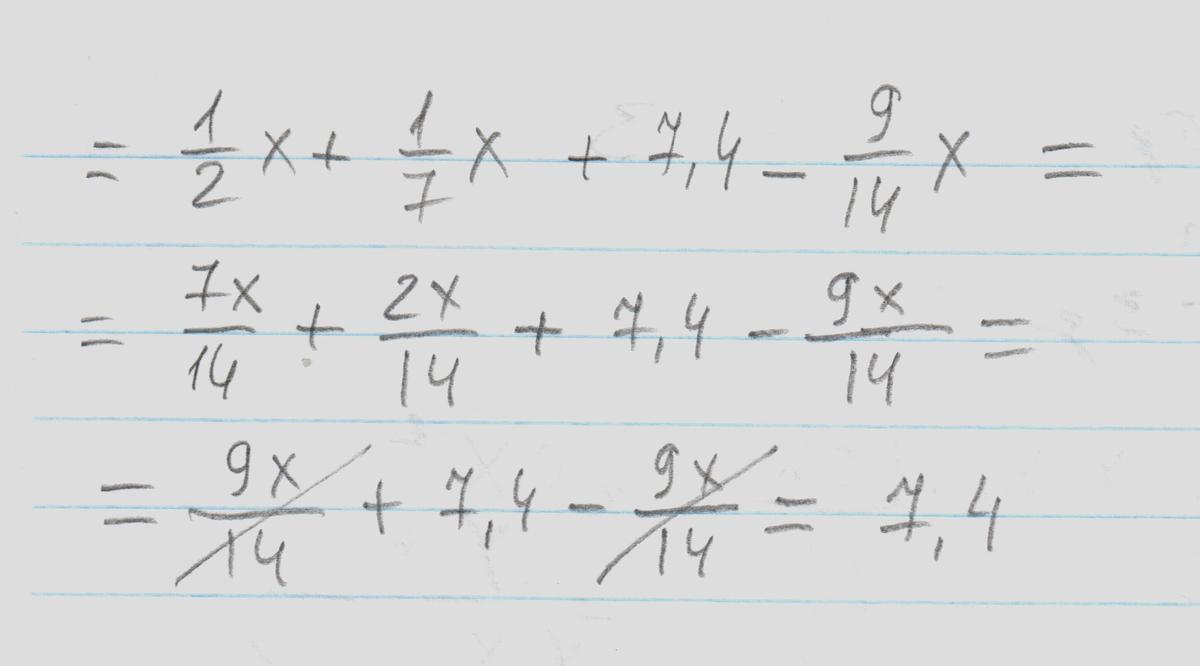 = 1/2 x + 1/7 x + 7,4 - 9/14 x =
= 7x/14 + 2x/14 + 7,4 - 9x/14 =
= 9x/14 + 7,4 - 9x/14 = 7,4